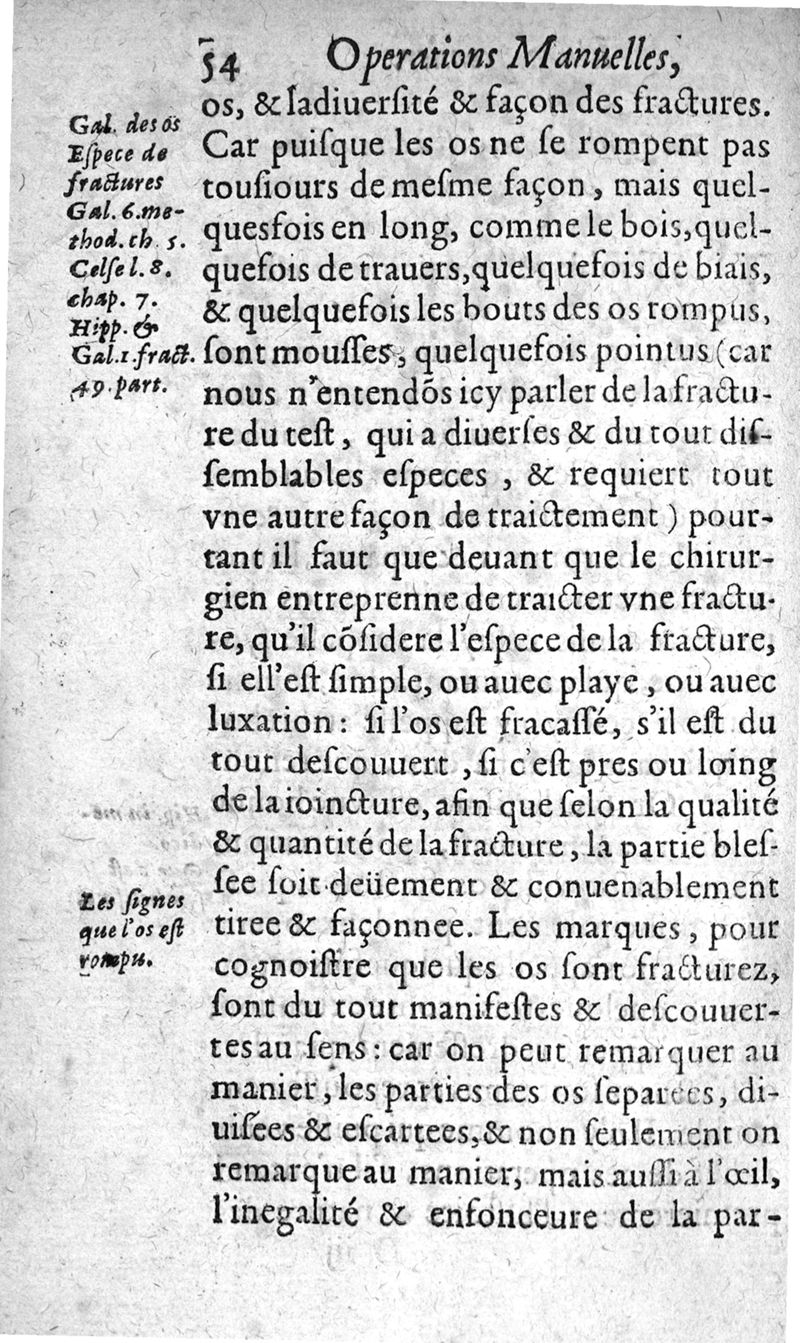 54 Operations Manuelles,
os, & ladiuerſité & façon des fractures.
Car puiſque les os ne ſe rompent pas
touſiours de meſme façon, mais quel-
quesfois en long, comme le bois, quel-
quefois de trauers, quelquefois de biais,
& quelquefois les bouts des os rompus,
ſont mouſſes, quelquefois pointus (car
nous n'entendõs icy parler de la fractu-
re du teſt, qui a diuerſes & du tout diſ-
ſemblables eſpeces, & requiert tout
vne autre façon de traictement) pour-
tant il faut que deuant que le chirur-
gien entreprenne de traicter vne fractu-
re, qu'il cõſidere l'eſpece de la fracture,
ſi ell'eſt ſimple, ou auec playe, ou auec
luxation: ſi l'os eſt fracaſſé, s'il eſt du
tout deſcouuert, ſi c'eſt pres ou loing
de la ioincture, afin que ſelon la qualité
& quantité de la fracture, la partie bleſ-
ſee ſoit deüement & conuenablement
tiree & façonnee. Les marques, pour
cognoiſtre que les os ſont fracturez,
ſont du tout manifeſtes & deſcouuer-
tes au ſens: car on peut remarquer au
manier, les parties des os ſeparees, di-
uiſées & eſcartees, & non ſeulement on
remarque au manier, mais auſſi à l'œil,
l'inegalité & enfonceure de la par-
Gal. des os
Eſpece de
fractures
Gal. 6. me-
thod. ch. 5.
Celſe l. 8.
chap. 7.
Hipp. &
Gal. 1. fract.
49. part.
Les ſignes
que l'os eſt
rompu.